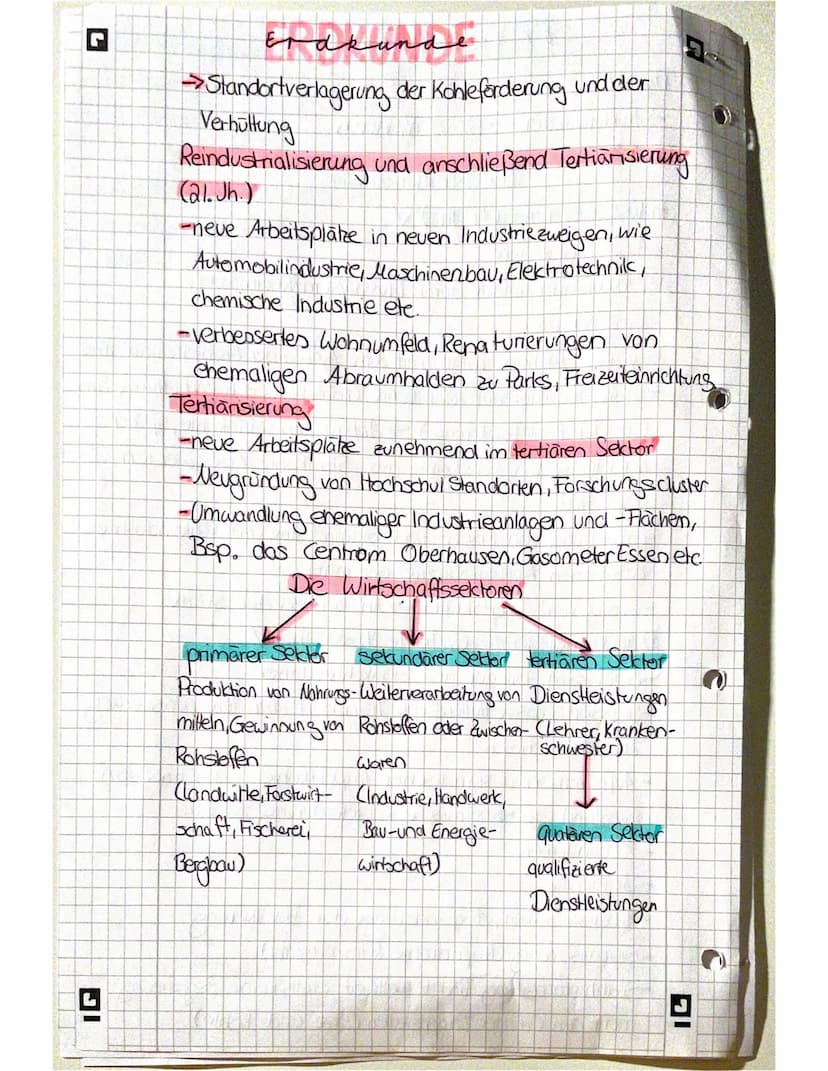 ERDKUNDE
Erdkunde
→Standortverlagerung der Kohleförderung und der
Verhüttung
Reindustrialisierung und anschließend Tertiärisierung
(21. Jh.)
-neue Arbeitsplätze in neuen Industriezweigen, wie
Automobilindustrie, Maschinenbau, Elektrotechnik,
chemische Industrie etc.
-verbessertes Wohnumfeld, Renaturierungen von
ehemaligen Abraumhalden zu Parks, Freizeiteinrichtung
Tertiärisierung
-neue Arbeitsplätze zunehmend im tertiären Sektor
-Neugründung von Hochschul Standorten, Forschungscluster
-Umwandlung ehemaliger Industrieanlagen und -Flächen,
Bsp. das Centrom Oberhausen, Gasometer Essen etc.
Die Wirtschaftssektoren
primärer Sektor sekundärer Sektor tertiären Sektor
Produktion von Nahrungs- Weiterverarbeitung von Dienstleistungen
mitteln, Gewinnung von Rohstoffen oder Zwischen- (Lehrer, Kranken-
schwester)
Rohstoffen waren
(Landwirte, Forstwirt- (Industrie, Handwerk,
schaft, Fischerei, Bau- und Energie- quatären Sektor
Bergbau) wirtschaft) qualifizierte
Dienstleistungen